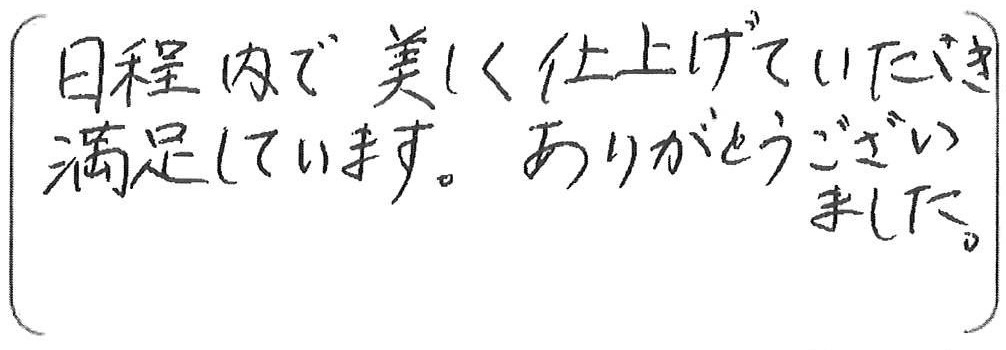 日程内で美しく仕上げていただき
満足しています。ありがとうござい
ました。